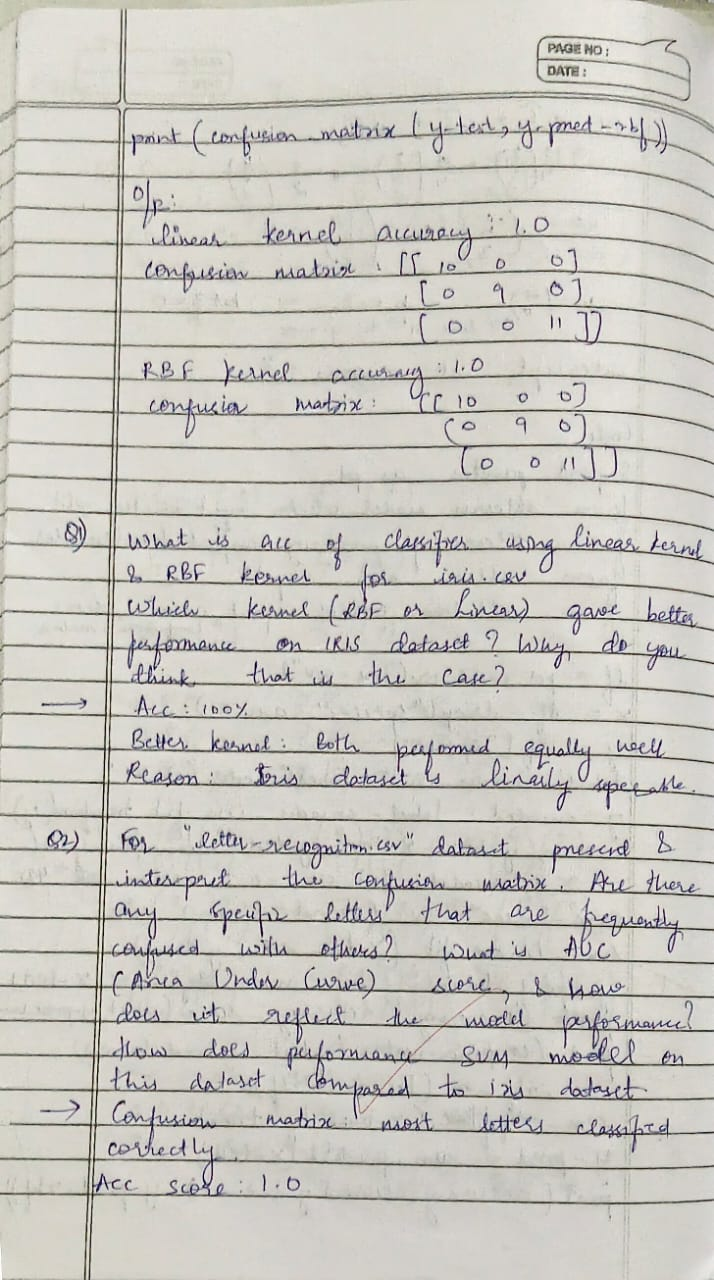 PAGE NO :
DATE :
print (confusion_matrix (y-test, y-pred-rbf))
O/P:
linear kernel accuracy : 1.0
confusion matrix : [[ 10 0 0]
[0 9 0]
[0 0 11]]
RBF kernel accuracy : 1.0
confusion matrix : [[ 10 0 0]
[0 9 0]
[0 0 11]]
Q1) What is acc of classifier using linear kernel
& RBF kernel for iris.csv
Which kernel (RBF or Linear) gave better
performance on IRIS dataset ? Why do you
think that is the case?
→ Acc : 100%
Better kernel : Both performed equally well
Reason : Iris dataset is linearly seperable.
Q2) For "letter-recognition.csv" dataset present &
interpret the confusion matrix. Are there
any specific letters that are frequently
confused with others? What is AUC
(Area Under Curve) score, & how
does it reflect the model performance?
How does performance SVM model on
this dataset compared to iris dataset
→ Confusion matrix : most letters classified
correctly.
Acc score : 1.0